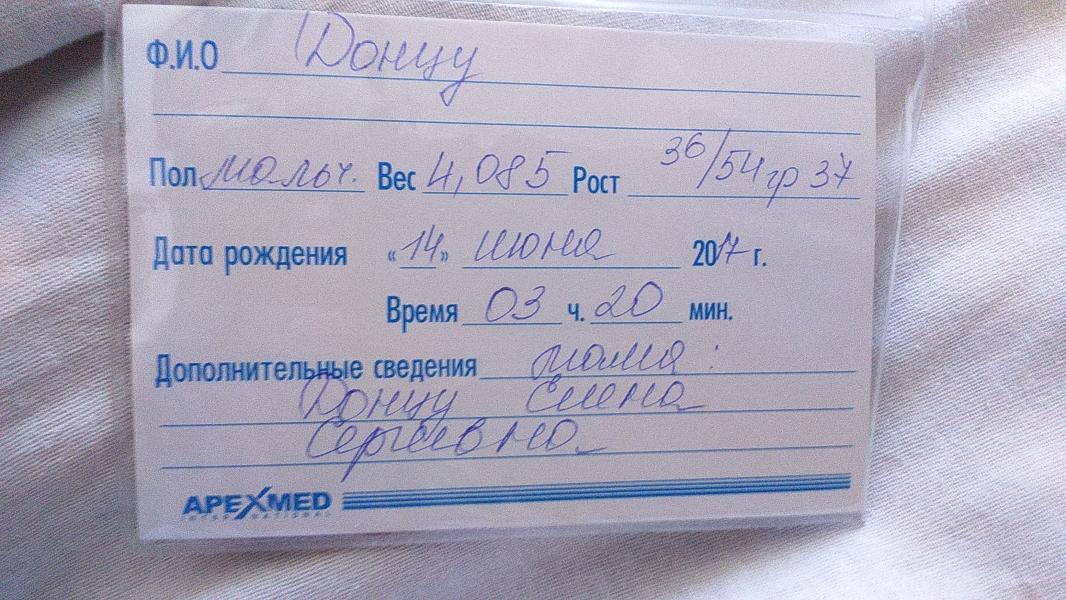 Ф.И.О Донцу
Пол мальч. Вес 4,085 Рост 36/54 гр 37
Дата рождения «14» июня 2017 г.
Время 03 ч. 20 мин.
Дополнительные сведения мама:
Донцу Елена
Сергеевна
APEXMED
INTERNATIONAL